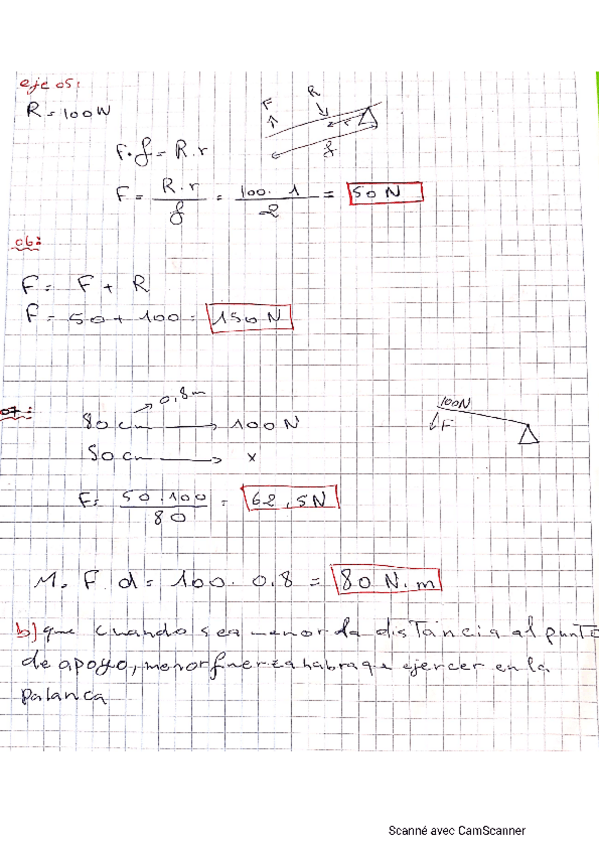 eje 05:
R = 100W
F R
f
F · f = R.r
F = R.r / f = 100. 1 / 2 = 50N
06:
F = F + R
F = 50 + 100 = 150N
07:
0,8m
80 cm → 100N
50 cm → x
100N
F
F = 50.100 / 80 = 62,5N
M. F. d = 100. 0.8 = 80 N.m
b) que cuando sea menor la distancia al punto
de apoyo, menor fuerza habra que ejercer en la
palanca
Scanné avec CamScanner